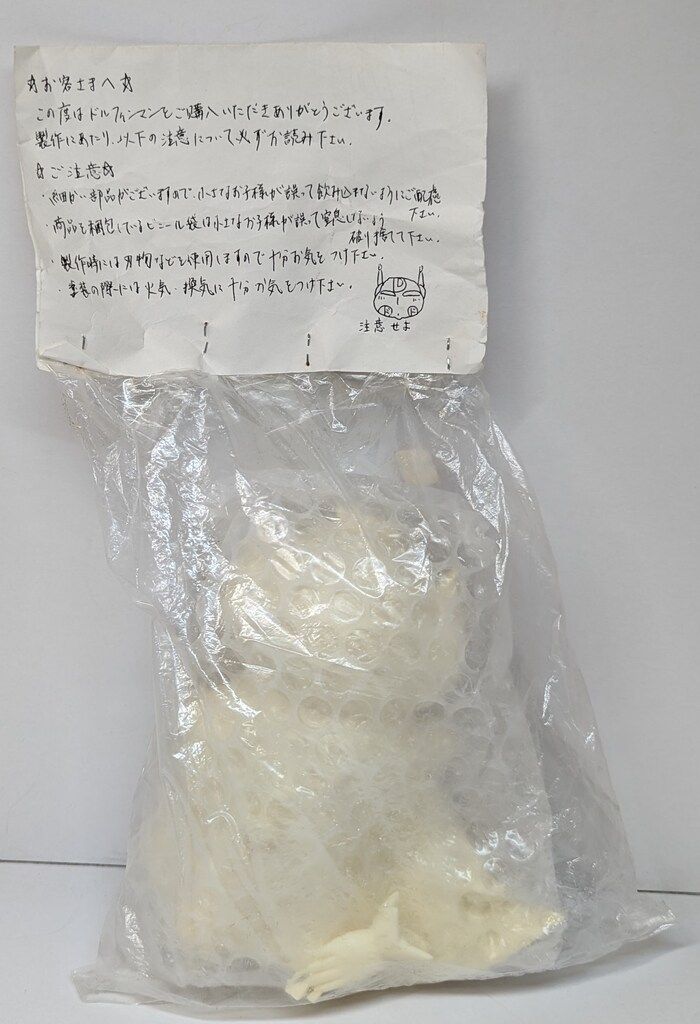 ☆お客さまへ☆
この度はドルフィンマンをご購入いただきありがとうございます。
製作にあたり、以下の注意について必ずお読み下さい。
☆ご注意☆
・細かい部品がございますので、小さなお子様が誤って飲み込まないようにご配慮下さい。
・商品を梱包しているビニール袋は小さなお子様が誤って窒息しないよう
破り捨てて下さい。
・製作時には刃物なども使用しますので十分お気をつけ下さい。
・塗装の際には火気・換気に十分お気をつけ下さい。
D
注意せよ